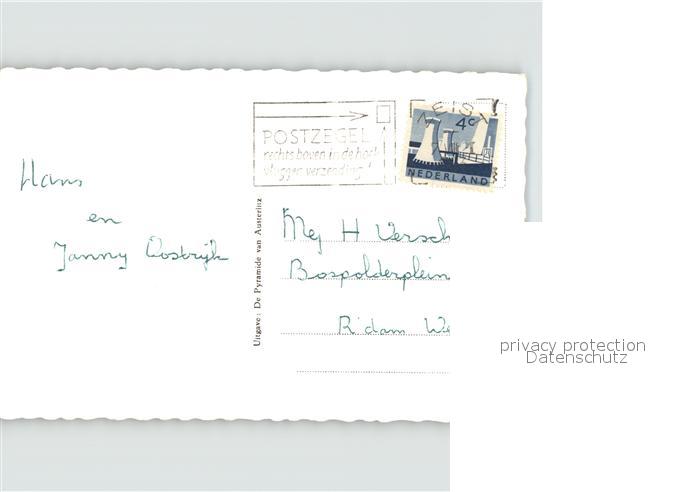 POSTZEGEL
rechts boven in de hoek
vlugger verzending
ZEIST
4c
NEDERLAND
Hans
en
Janny Oostrijk
Uitgave: De Pyramide van Austerlitz
Mej H Versch
Bospolderplein
R'dam We
privacy protection
Datenschutz